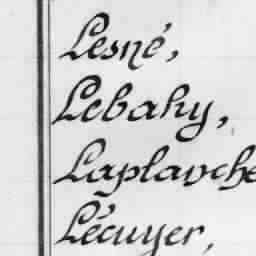 Lesné,
Lebahy,
Laplanche
Lécuyer,